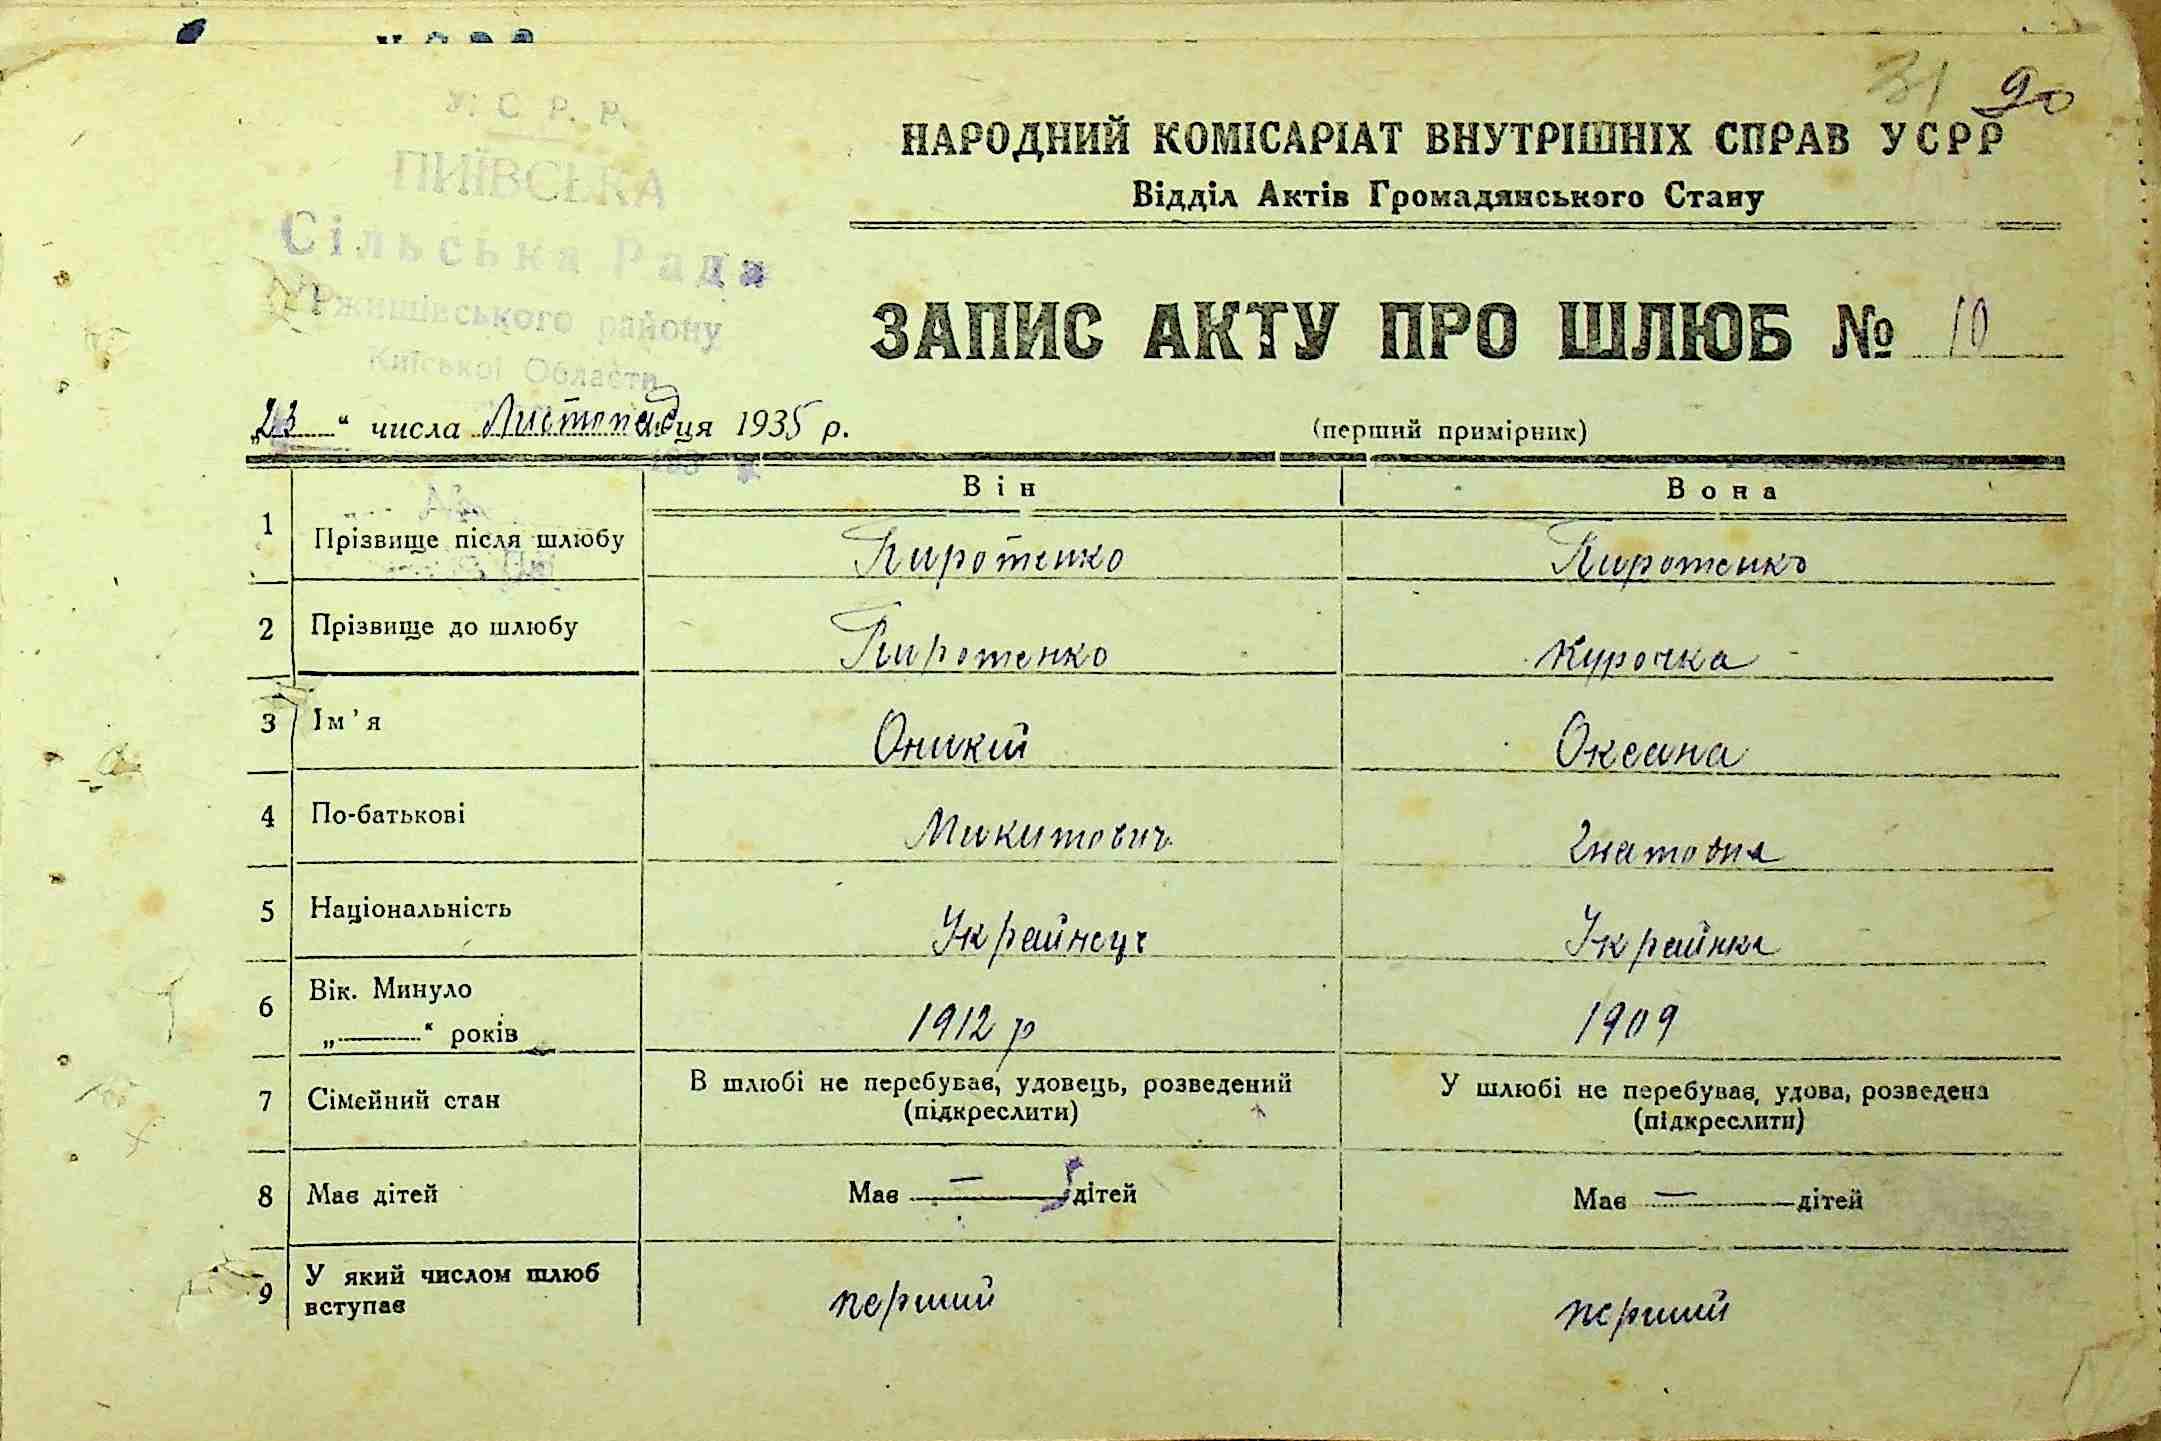 31 90
У. С. Р. Р.
ПИЇВСЬКА
Сільська Рада
Ржищівського району
Київської Области
НАРОДНИЙ КОМІСАРІАТ ВНУТРІШНІХ СПРАВ УСРР
Відділ Актів Громадянського Стану
ЗАПИС АКТУ ПРО ШЛЮБ № 10
„23“ числа Листопад ця 1935 р.
(перший примірник)
Він Вона
1 Прізвище після шлюбу Пиротенко Пиротенко
2 Прізвище до шлюбу Пиротенко Курочка
3 Ім'я Оникій Оксана
4 По-батькові Микитович Гнатовна
5 Національність Українець Українка
6 Вік. Минуло
„ “ років 1912 р 1909
7 Сімейний стан В шлюбі не перебував, удовець, розведений (підкреслити) У шлюбі не перебував, удова, розведена (підкреслити)
8 Має дітей Має — дітей Має — дітей
9 У який числом шлюб вступає перший перший